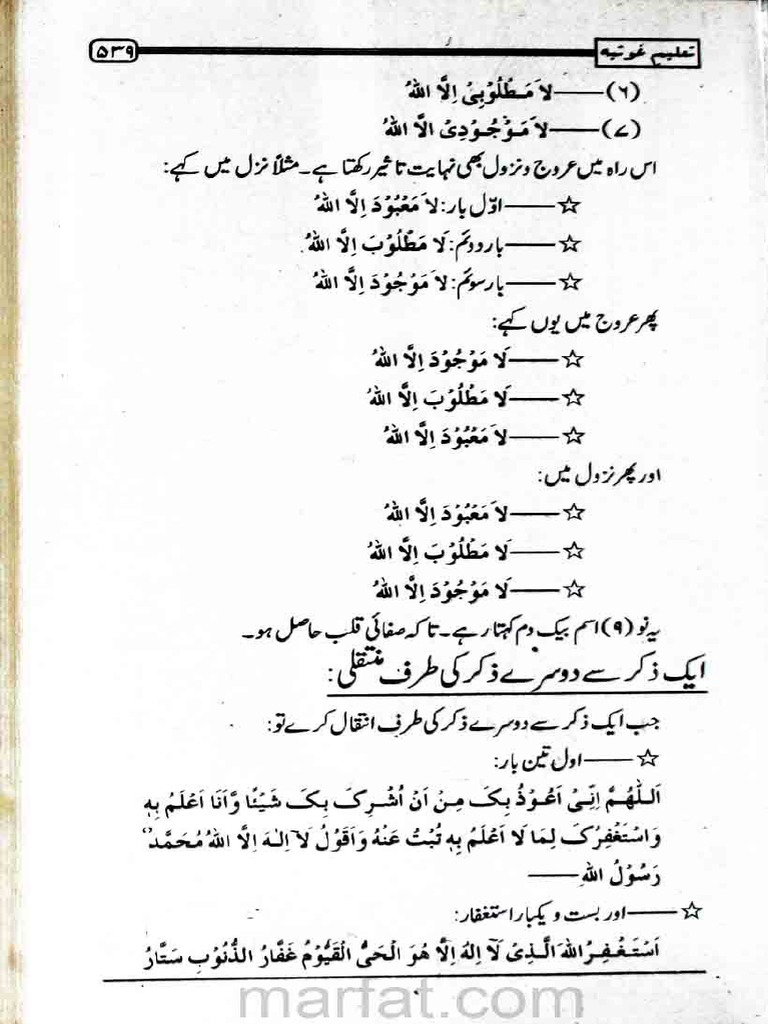 تعلیم غوثیہ ۵۳۹
(۶)——لَا مَطْلُوْبِیْ اِلَّا اللهُ
(۷)——لَا مَوْجُوْدِیْ الَّا اللهُ
اس راہ میں عروج و نزول بھی نہایت تاثیر رکھتا ہے۔ مثلاً نزل میں کہے:
☆——اوّل بار: لَا مَعْبُوْدَ اِلَّا اللهُ
☆——بار دوئم: لَا مَطْلُوْبَ اِلَّا اللهُ
☆——بار سوئم: لَا مَوْجُوْدَ اِلَّا اللهُ
پھر عروج میں یوں کہے:
☆——لَا مَوْجُوْدَ اِلَّا اللهُ
☆——لَا مَطْلُوْبَ اِلَّا اللهُ
☆——لَا مَعْبُوْدَ اِلَّا اللهُ
اور پھر نزول میں:
☆——لَا مَعْبُوْدَ اِلَّا اللهُ
☆——لَا مَطْلُوْبَ اِلَّا اللهُ
☆——لَا مَوْجُوْدَ اِلَّا اللهُ
یہ نو (۹) اسم بیک دم کہتا رہے۔ تاکہ صفائی قلب حاصل ہو۔
ایک ذکر سے دوسرے ذکر کی طرف منتقلی:
جب ایک ذکر سے دوسرے ذکر کی طرف انتقال کرے تو:
☆——اول تین بار:
اَللّٰهُمَّ اِنِّیْ اَعُوْذُ بِکَ مِنْ اَنْ اُشْرِکَ بِکَ شَیْئًا وَّاَنَا اَعْلَمُ بِهٖ
وَاسْتَغْفِرُکَ لِمَا لَا اَعْلَمُ بِهٖ تُبْتُ عَنْهُ وَاَقُوْلُ لَآ اِلٰهَ اِلَّا اللهُ مُحَمَّدٌ
رَسُوْلُ اللهِ——
☆——اور بست و یکبار استغفار:
اَسْتَغْفِرُ اللهَ الَّذِیْ لَآ اِلٰهَ اِلَّا هُوَ الْحَیُّ الْقَیُّوْمُ غَفَّارُ الذُّنُوْبِ سَتَّارُ
marfat.com